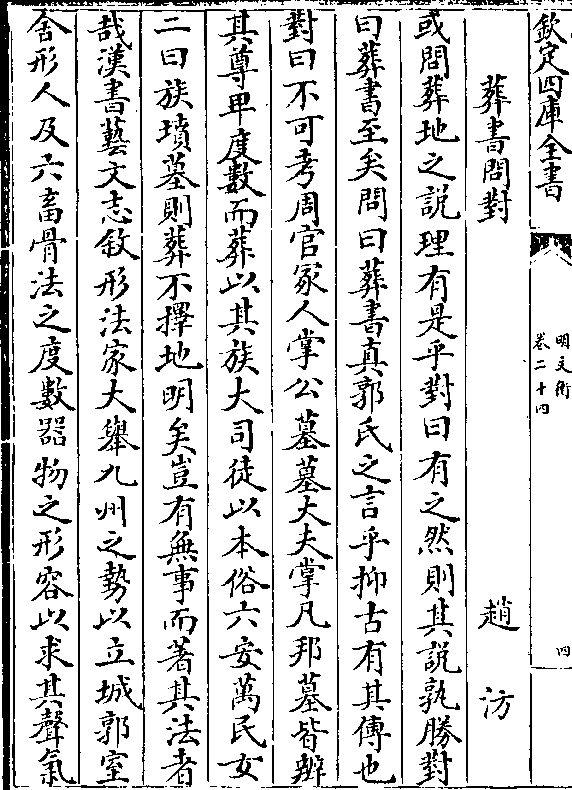 欽定四庫全書
明文衡
卷二十四
四
葬書問對
趙汸
或問葬地之説理有是乎對曰有之然則其説孰勝對
曰葬書至矣問曰葬書真郭氏之言乎抑古有其傳也
對曰不可考周官冢人掌公墓墓大夫掌凡邦墓皆辨
其尊卑度數而葬以其族大司徒以本俗六安萬民女
二曰族墳墓則葬不擇地明矣豈有無事而著其法者
哉漢書藝文志敘形法家大舉九州之勢以立城郭室
舍形人及六畜骨法之度數器物之形容以求其聲氣